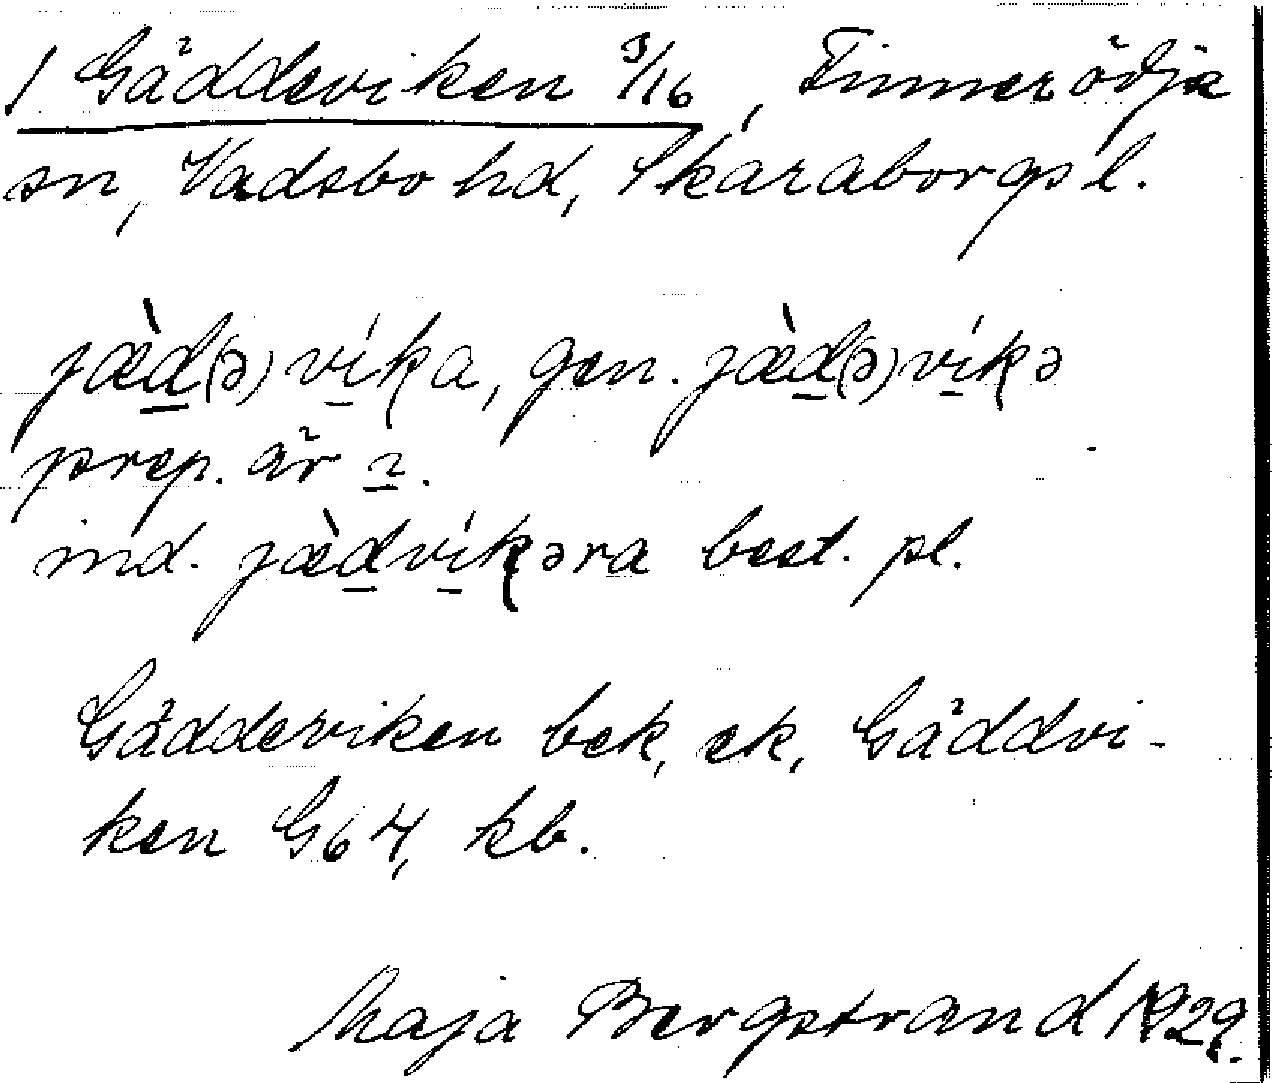 1 Gäddeviken 3/16, Finnerödja
sn, Vadsbo hd, Skaraborgs l.
jæ̀d(ə)víka, gen. jæ̀d(ə)víkə
prep. är ɪ.
ind. jæ̀dvíkəra best. pl.
Gäddeviken bek, ek, Gäddvi-
ken G64, kb.
Maja Bergstrand 1929.